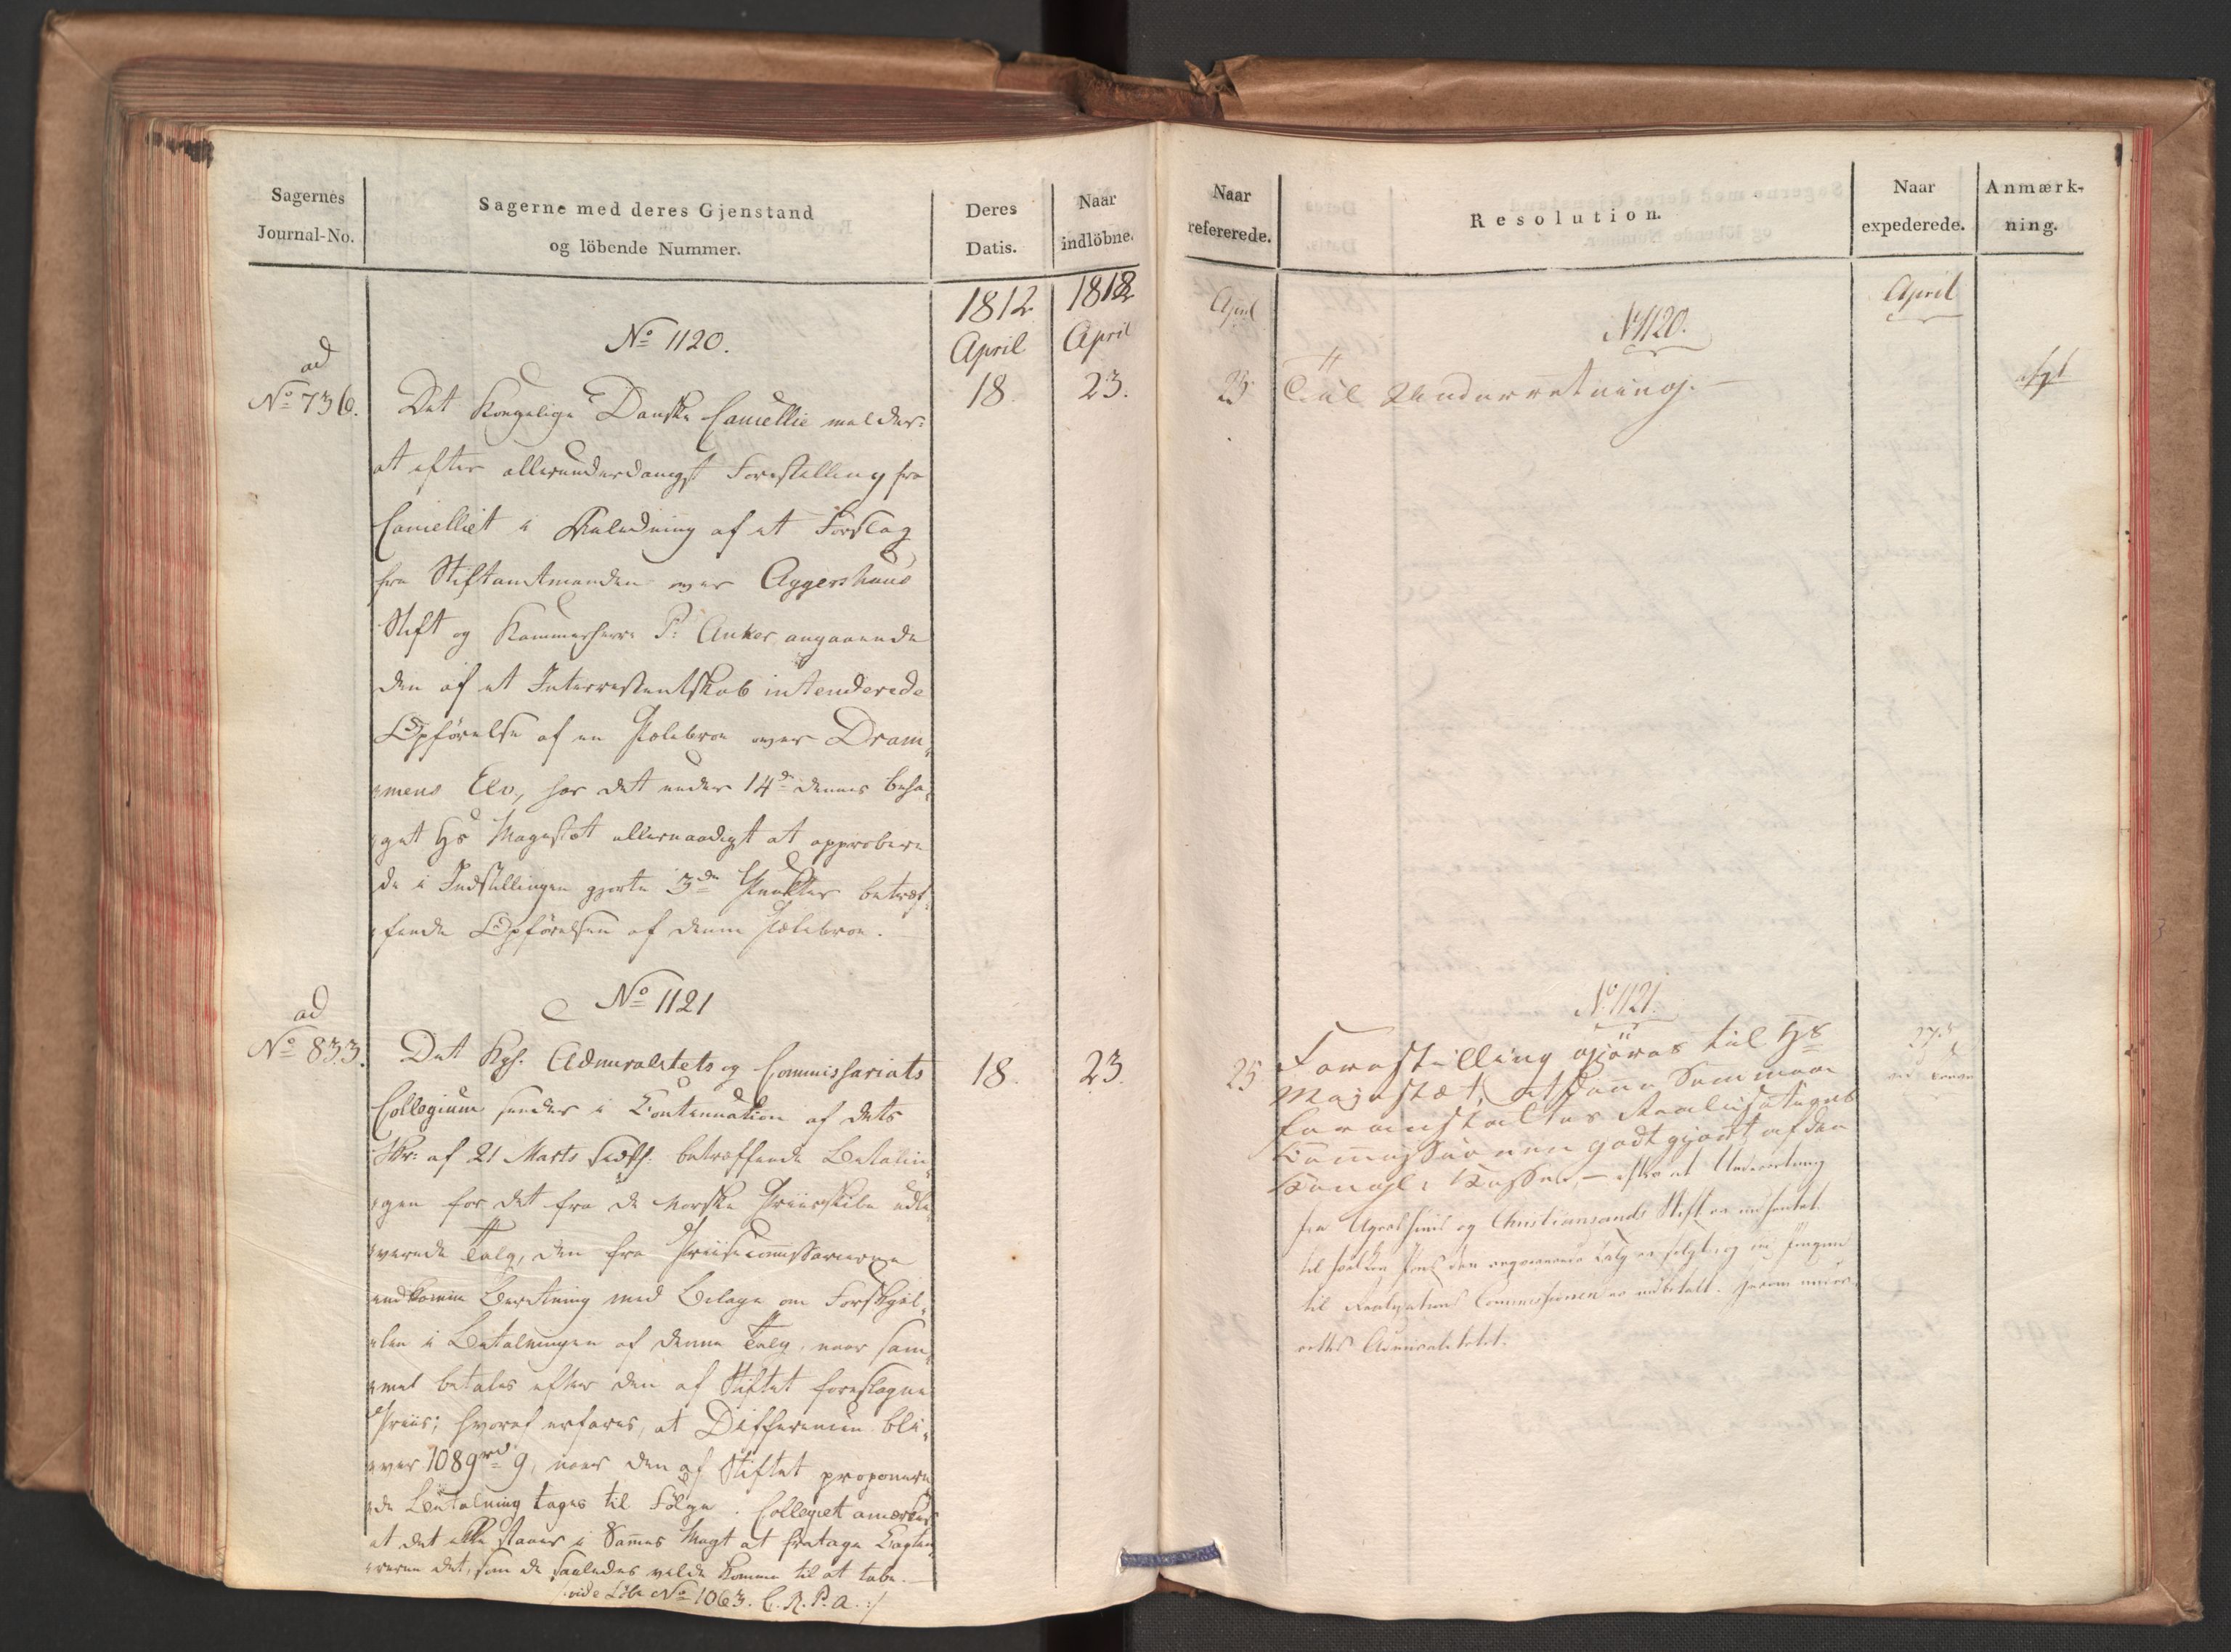 Sagernes
Journal-No.
Sagerne med deres Gjenstand
og löbende Nummer.
Deres
Datis.
Naar
indlöbne.
1812
April
1812
April
No 1120.
ad
No 736.
18.
23.
Det Kongelige Danske Cancellie melder:
at efter allerunderdanigst Forestilling fra
Cancelliet i Anledning af et Forslag
fra Stiftamtmanden over Aggershuus
Stift og Kammerherre P: Anker angaaende
den af et Interessentskab intenderede
Opførelse af en Pælebroe over Dram,
,mens Elv, har det under 14de dennes beha,
,get Hs Majestæt allernaadigst at approbere
de i Indstillingen gjorte 3de Puncter betræf,
,fende Opførelsen af denne Pælebroe.
No 1121
ad
No 833.
18.
23.
Det Kgl. Admiralitets og Commissariats
Collegium sender i Continuation af dets
Skr: af 21 Marts sidstl. betræffende Betalin,
,gen for det fra de Norske Priisskibe udle,
,verede Talg, den fra Priiscommissairerne
indkomne Beretning med Bilage om Forskjel,
,len i Betalningen af denne Talg, naar sam,
,mel betales efter den af Stiftet foreslagne
Priis; hvoraf erfares, at Differencen bli,
,ver 1089 rd 9, naar den af Stiftet propone
,de Betalning tages til Følge. Collegiet anmærker
at det ikke staaer i Sammes Magt at fratage Capta
det, som de saaledes vilde komme til at tabe.
/:vide Løbe No 1063. C. R. P. A.:/
Naar
refererede.
Resolution.
Naar
expederede.
Anmærk-
ning.
April
April
No 1120.
25
Til Underretning.
No 1121.
25
27
Forestilling gjøres til Hs
Majestæt, at denne Summa
foranstaltes Realisations
Commissionen godtgjort af den
Kongl: Kasse, – efter at Underretning
fra Agershuus og Christiansands Stift er indhentet
til hvilken Priis den Talg er solgt og om Pengene
til Realisations Commissionen er indbetalt. Herom under
rettes Admiralitetet.